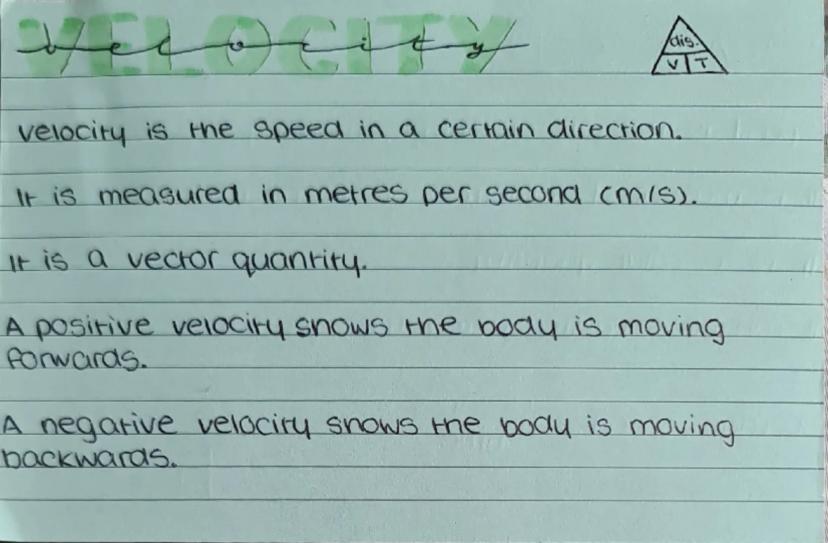 VELOCITY
velocity
dis.
V T
velocity is the speed in a certain direction.
It is measured in metres per second (m/s).
It is a vector quantity.
A positive velocity shows the body is moving
forwards.
A negative velocity shows the body is moving
backwards.